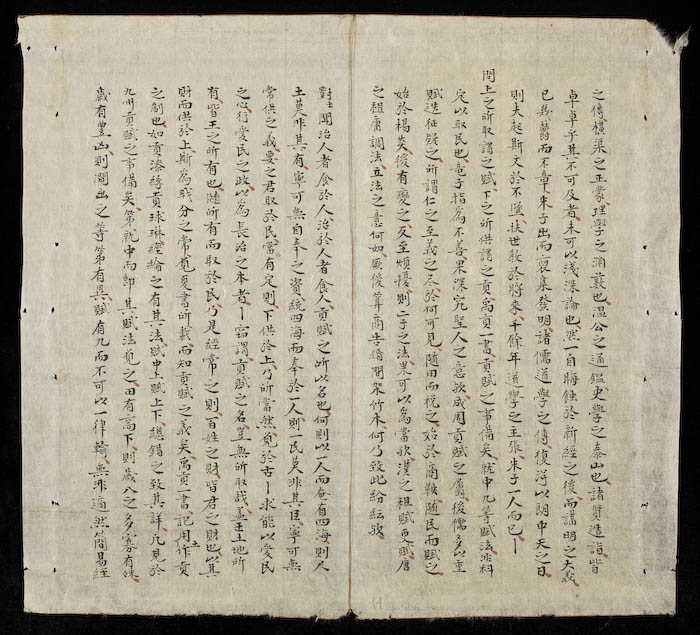 之傳橫渠之正蒙理學之渊藪也温公之通鑑史學之泰山也諸賢造詣皆
卓卓乎其不可及者未可以淺深論也然一自晦蝕於新經之後而講明之大義
已義蕪而不章朱子出而裒集發明諸儒道學之傳復得以朗中天之日
則夫起斯文於不墜扶世教於將來千餘年道學之主張朱子一人而已
問上之所取謂之賦下之所供謂之貢禹貢一書貢賦之事備矣就中九等賦法非科
定以取民也竜子指為不善果深究聖人之意歟成周貢賦之屬後儒多以重
賦造征疑之所謂仁之至義之尽於何可見随田而稅之始於商鞅随民而賦之
始於楊炎後有變之反至煩擾則二子之法果可以為當歟漢之租賦更賦唐
之租庸調法立法之意何如厥後算商告緡間架竹木何乃致此紛紜歟
對士聞治人者食於人治於人者食人貢賦之所以名也何則以一人而奄有四海則尺
土莫非其有寧可無自奉之資統四海而奉於一人則一民莫非其臣寧可無
常供之義要之君取於民當有定則下供於上乃所當然覓於古求能以愛民
之心行愛民之政以為長治之本者竊謂貢賦之名豈無所取哉盖王土地所
有皆王之所有也随所有而取於民乃見經常之則百姓之財皆君之財也以其
財而供於上斯為戝分之常覓夏書所載而知貢賦之義矣禹貢一書記用作貢
之制也如貢漆絲貢球琳經綸之有其法賦中上賦上下緦錯之致其詳凡見於
九州貢賦之事備矣第就中而即其賦法覓之田有高下則歲入之多寡有殊
歲有豊凶則間出之等第有異賦有九而不可以一律輸無非適然簡易經